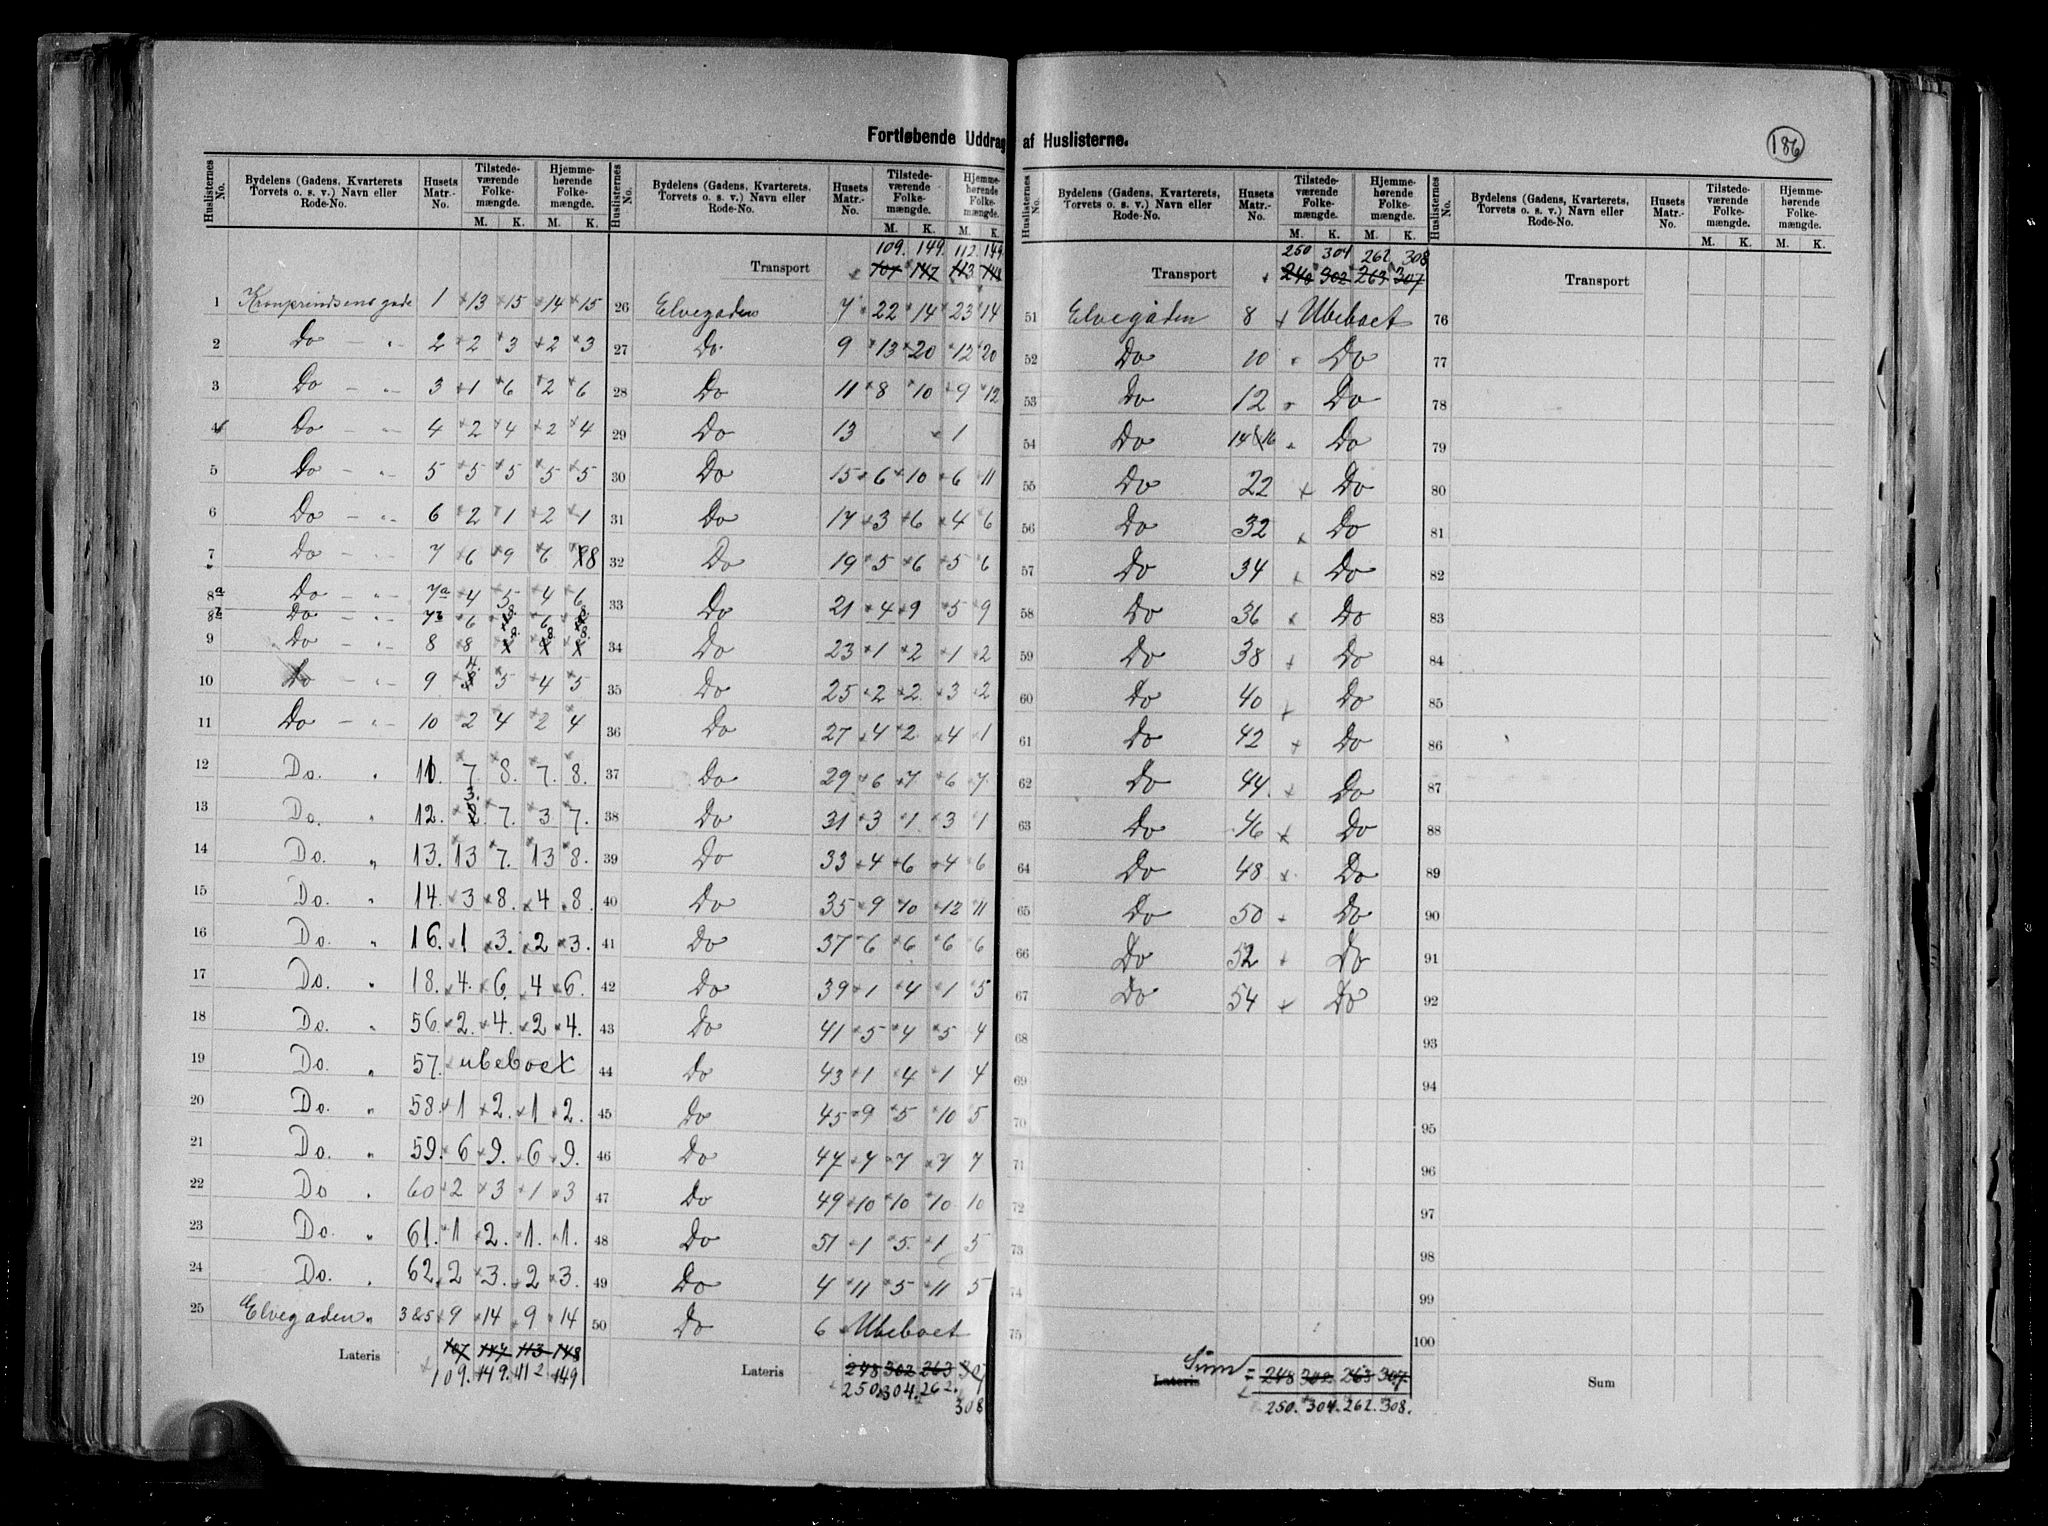 Fortløbende Uddrag af Huslisterne.
186
Huslisternes No. | Bydelens (Gadens, Kvarterets Torvets o. s. v.) Navn eller Rode-No. | Husets Matr.-No. | Tilstedeværende Folkemængde. M. K. | Hjemmehørende Folkemængde. M. K.
1 Kronprindsens gade 1 13 15 14 15
2 Do - „- 2 2 3 2 3
3 Do - „- 3 1 6 2 6
4 Do - „- 4 2 4 2 4
5 Do - „- 5 5 5 5 5
6 Do - „- 6 2 1 2 1
7 Do - „- 7 6 9 6 8
8a Do - „- 7a 4 5 4 6
8b Do - „- 7b 6 8. 6 8
9 Do - „- 8 8 8. 8. 8.
10 Do - „- 9 4. 5 4 5
11 Do - „- 10 2 4 2 4
12 Do. „ 11. 7. 8. 7. 8.
13 Do. „ 12. 3. 7. 3 7.
14 Do. „ 13. 13 7. 13 8.
15 Do. „ 14. 3 8. 4 8.
16 Do. „ 16. 1 3. 2 3.
17 Do. „ 18. 4. 6. 4 6.
18 Do. „ 56. 2. 4. 2 4.
19 Do. „ 57. ubeboet
20 Do. „ 58. 1 2. 1 2.
21 Do. „ 59. 6 9. 6 9.
22 Do „ 60 2 3 1 3
23 Do. „ 61. 1 2. 1. 1.
24 Do. „ 62. 2 3. 2 3.
25 Elvegaden „ 3 & 5 9 14 9 14
Lateris 107 147 113 148
109. 149. 112 149
Huslisternes No. | Bydelens (Gadens, Kvarterets, Torvets o. s. v.) Navn eller Rode-No. | Husets Matr.-No. | Tilstedeværende Folkemængde. M. K. | Hjemmehørende Folkemængde. M. K.
109. 149. 112. 149
Transport 107 147 113 148
26 Elvegaden 7 22 14 23 14
27 Do. 9 13 20 12 20
28 Do 11 8 10 9 12
29 Do 13 1
30 Do 15 6 10 6 11
31 Do 17 3 6 4 6
32 Do 19 5 6 5 6
33 Do 21 4 9 5 9
34 Do 23 1 2 1 2
35 Do 25 2 2 3 2
36 Do 27 4 2 4 1
37 Do 29 6 7 6 7
38 Do 31 3 1 3 1
39 Do 33 4 6 4 6
40 Do 35 9 10 12 11
41 Do 37 6 6 6 6
42 Do 39 1 4 1 5
43 Do 41 5 4 5 4
44 Do 43 1 4 1 4
45 Do 45 9 5 10 5
46 Do 47 7 7 7
47 Do 49 10 10 10 10
48 Do 51 1 5 1 5
49 Do 4 11 5 11 5
50 Do 6 Ubeboet
Lateris 248 302 263 307
250. 304. 262. 308
Huslisternes No. | Bydelens (Gadens, Kvarterets, Torvets o. s. v.) Navn eller Rode-No. | Husets Matr.-No. | Tilstedeværende Folkemængde. M. K. | Hjemmehørende Folkemængde. M. K.
250 304 262 308
Transport 248 302 263 307
51 Elvegaden 8 Ubeboet
52 Do 10 Do
53 Do 12 Do
54 Do 14 & 16 Do
55 Do 22 Do
56 Do 32 Do
57 Do 34 Do
58 Do 36 Do
59 Do 38 Do
60 Do 40 Do
61 Do 42 Do
62 Do 44. Do
63 Do 46 Do
64 Do 48 Do
65 Do 50 Do
66 Do 52 Do
67 Do 54 Do
68
69
70
71
72
73
74
75
Lateris Sum = 248 302 263 307.
250. 304. 262. 308.
Huslisternes No. | Bydelens (Gadens, Kvarterets, Torvets o. s. v.) Navn eller Rode-No. | Husets Matr.-No. | Tilstedeværende Folkemængde. M. K. | Hjemmehørende Folkemængde. M. K.
Transport
76
77
78
79
80
81
82
83
84
85
86
87
88
89
90
91
92
93
94
95
96
97
98
99
100
Sum